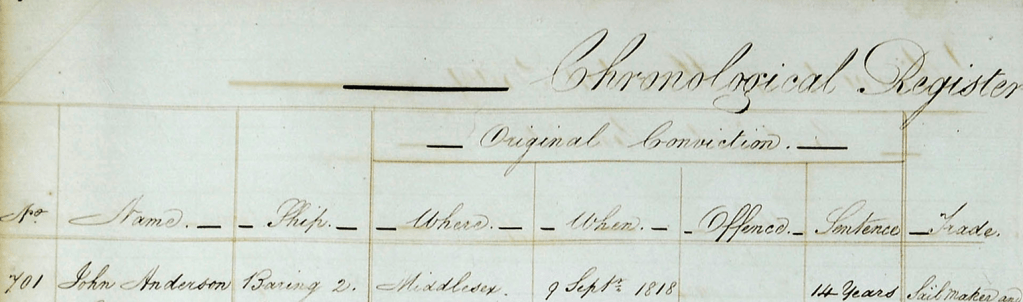 Chronological Register
Original Conviction.
No. Name. Ship. Where. When. Offence. Sentence Trade.
701 John Anderson Baring 2. Middlesex. 9 Septr. 1818 14 Years Sail maker and